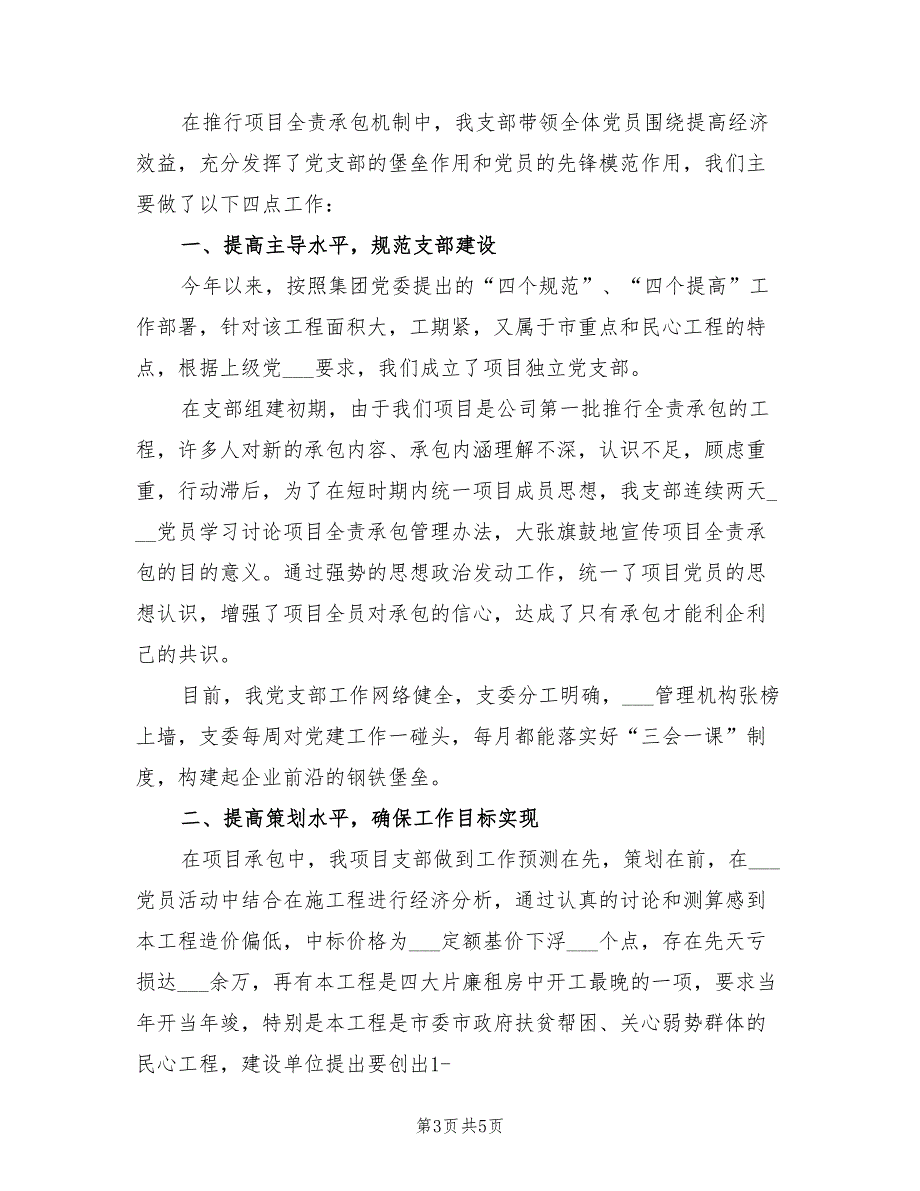 在推行项目全责承包机制中，我支部带领全体党员围绕提高经济
效益，充分发挥了党支部的堡垒作用和党员的先锋模范作用，我们主
要做了以下四点工作：
一、提高主导水平，规范支部建设
今年以来，按照集团党委提出的“四个规范”、“四个提高”工
作部署，针对该工程面积大，工期紧，又属于市重点和民心工程的特
点，根据上级党___要求，我们成立了项目独立党支部。
在支部组建初期，由于我们项目是公司第一批推行全责承包的工
程，许多人对新的承包内容、承包内涵理解不深，认识不足，顾虑重
重，行动滞后，为了在短时期内统一项目成员思想，我支部连续两天_
__党员学习讨论项目全责承包管理办法，大张旗鼓地宣传项目全责承
包的目的意义。通过强势的思想政治发动工作，统一了项目党员的思
想认识，增强了项目全员对承包的信心，达成了只有承包才能利企利
己的共识。
目前，我党支部工作网络健全，支委分工明确，___管理机构张榜
上墙，支委每周对党建工作一碰头，每月都能落实好“三会一课”制
度，构建起企业前沿的钢铁堡垒。
二、提高策划水平，确保工作目标实现
在项目承包中，我项目支部做到工作预测在先，策划在前，在___
党员活动中结合在施工程进行经济分析，通过认真的讨论和测算感到
本工程造价偏低，中标价格为___定额基价下浮___个点，存在先天亏
损达___余万，再有本工程是四大片廉租房中开工最晚的一项，要求当
年开当年竣，特别是本工程是市委市政府扶贫帮困、关心弱势群体的
民心工程，建设单位提出要创出1-
第3页共5页